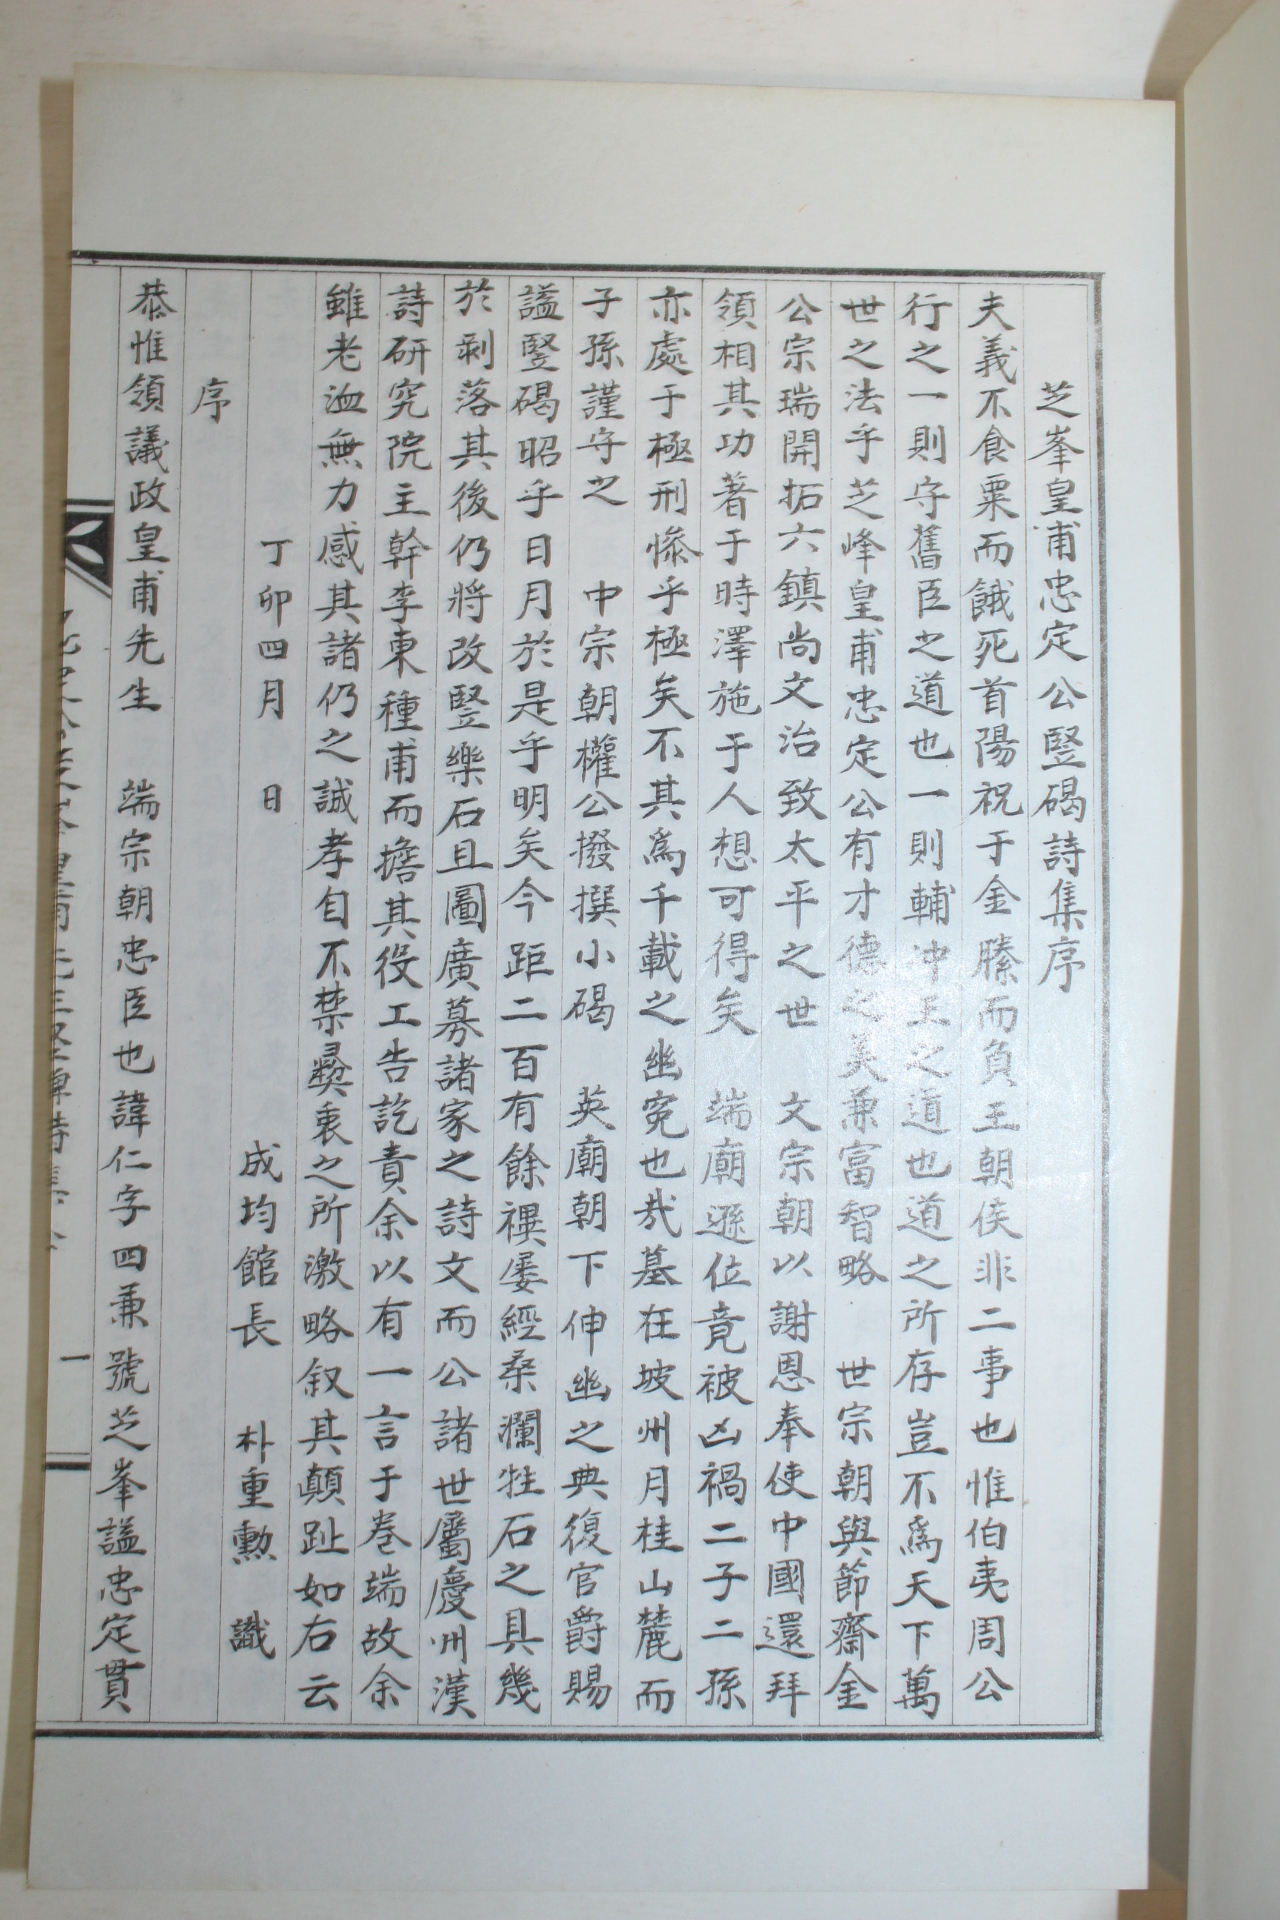 芝峯皇甫忠定公竪碣詩集序
夫義不食粟而餓死首陽祝于金縢而負王朝侯非二事也惟伯夷周公
行之一則守舊臣之道也一則輔冲王之道也道之所存豈不爲天下萬
世之法乎芝峰皇甫忠定公有才德之美兼富智略 世宗朝與節齋金
公宗瑞開拓六鎮尚文治致太平之世 文宗朝以謝恩奉使中國還拜
領相其功著于時澤施于人想可得矣 端廟遜位竟被凶禍二子二孫
亦處于極刑慘乎極矣不其爲千載之幽寃也哉墓在坡州月桂山麓而
子孫謹守之 中宗朝權公撥撰小碣 英廟朝下伸幽之典復官爵賜
謚竪碣昭乎日月於是乎明矣今距二百有餘禩屡經桑瀾牲石之具幾
於剥落其後仍將改竪樂石且圖廣募諸家之詩文而公諸世屬慶州漢
詩研究院主幹李東種甫而擔其役工告訖責余以有一言于卷端故余
雖老洫無力感其諸仍之誠孝自不禁彛衷之所激略叙其顛趾如右云
丁卯四月 日 成均館長 朴重勲 識
序
恭惟領議政皇甫先生 端宗朝忠臣也諱仁字四兼號芝峯謚忠定貫
一